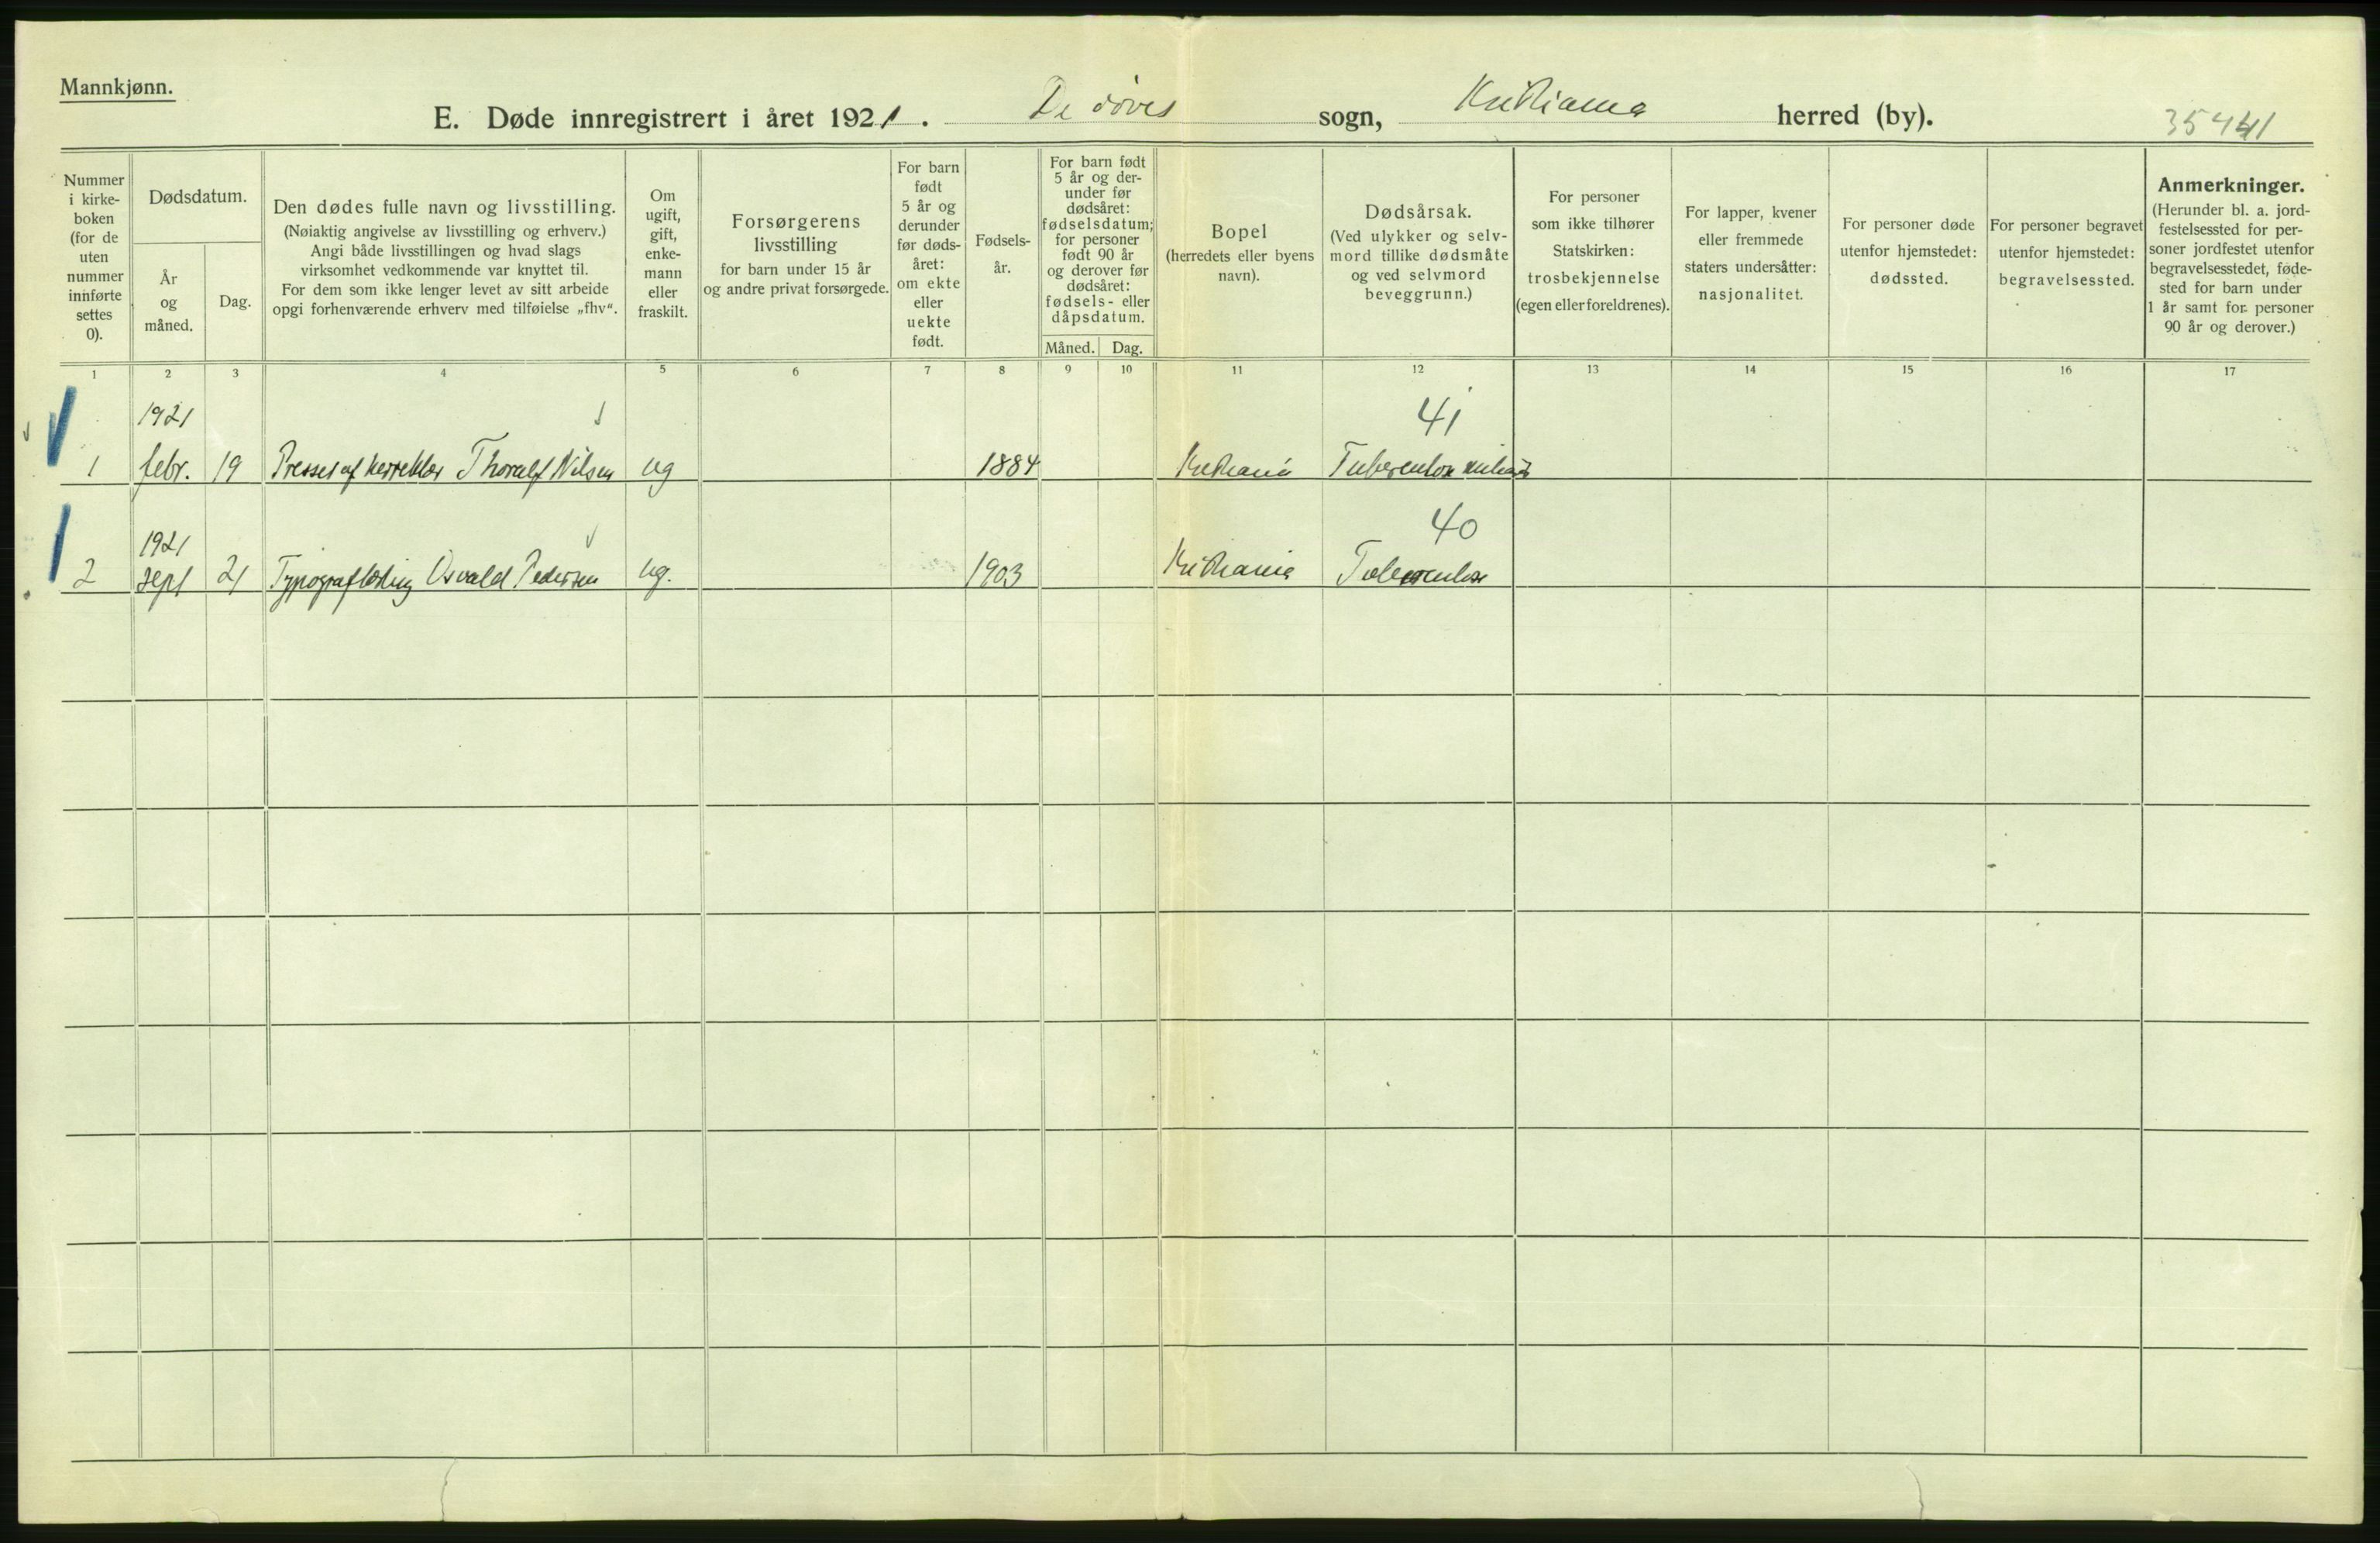 Mannkjønn.
E. Døde innregistrert i året 1921. De døves sogn, Kristiania herred (by).
35441
Nummer i kirke- boken (for de uten nummer innførte settes 0).
Dødsdatum.
År og måned.
Dag.
Den dødes fulle navn og livsstilling.
(Nøiaktig angivelse av livsstilling og erhverv.)
Angi både livsstillingen og hvad slags
virksomhet vedkommende var knyttet til.
For dem som ikke lenger levet av sitt arbeide
opgi forhenværende erhverv med tilføielse „fhv“.
Om ugift, gift, enke- mann eller fraskilt.
Forsørgerens
livsstilling
for barn under 15 år
og andre privat forsørgede.
For barn født 5 år og derunder før døds- året: om ekte eller uekte født.
Fødsels- år.
For barn født 5 år og der- under før dødsåret: fødselsdatum; for personer født 90 år og derover før dødsåret: fødsels- eller dåpsdatum.
Måned. Dag.
Bopel
(herredets eller byens
navn).
Dødsårsak.
(Ved ulykker og selv-
mord tillike dødsmåte
og ved selvmord
beveggrunn.)
For personer
som ikke tilhører
Statskirken:
trosbekjennelse
(egen eller foreldrenes).
For lapper, kvener
eller fremmede
staters undersåtter:
nasjonalitet.
For personer døde
utenfor hjemstedet:
dødssted.
For personer begravet
utenfor hjemstedet:
begravelsessted.
Anmerkninger.
(Herunder bl. a. jord-
festelsessted for per-
soner jordfestet utenfor
begravelsesstedet, føde-
sted for barn under
1 år samt for personer
90 år og derover.)
1 2 3 4 5 6 7 8 9 10 11 12 13 14 15 16 17
1921 41
1 febr. 19 Presser af herreklær Thoralf Nilsen ug 1884 Kristiania Tuberculose
1921 40
2 sept 21 Typograflærling Osvald Pedersen ug. 1903 Kristiania Tuberculose